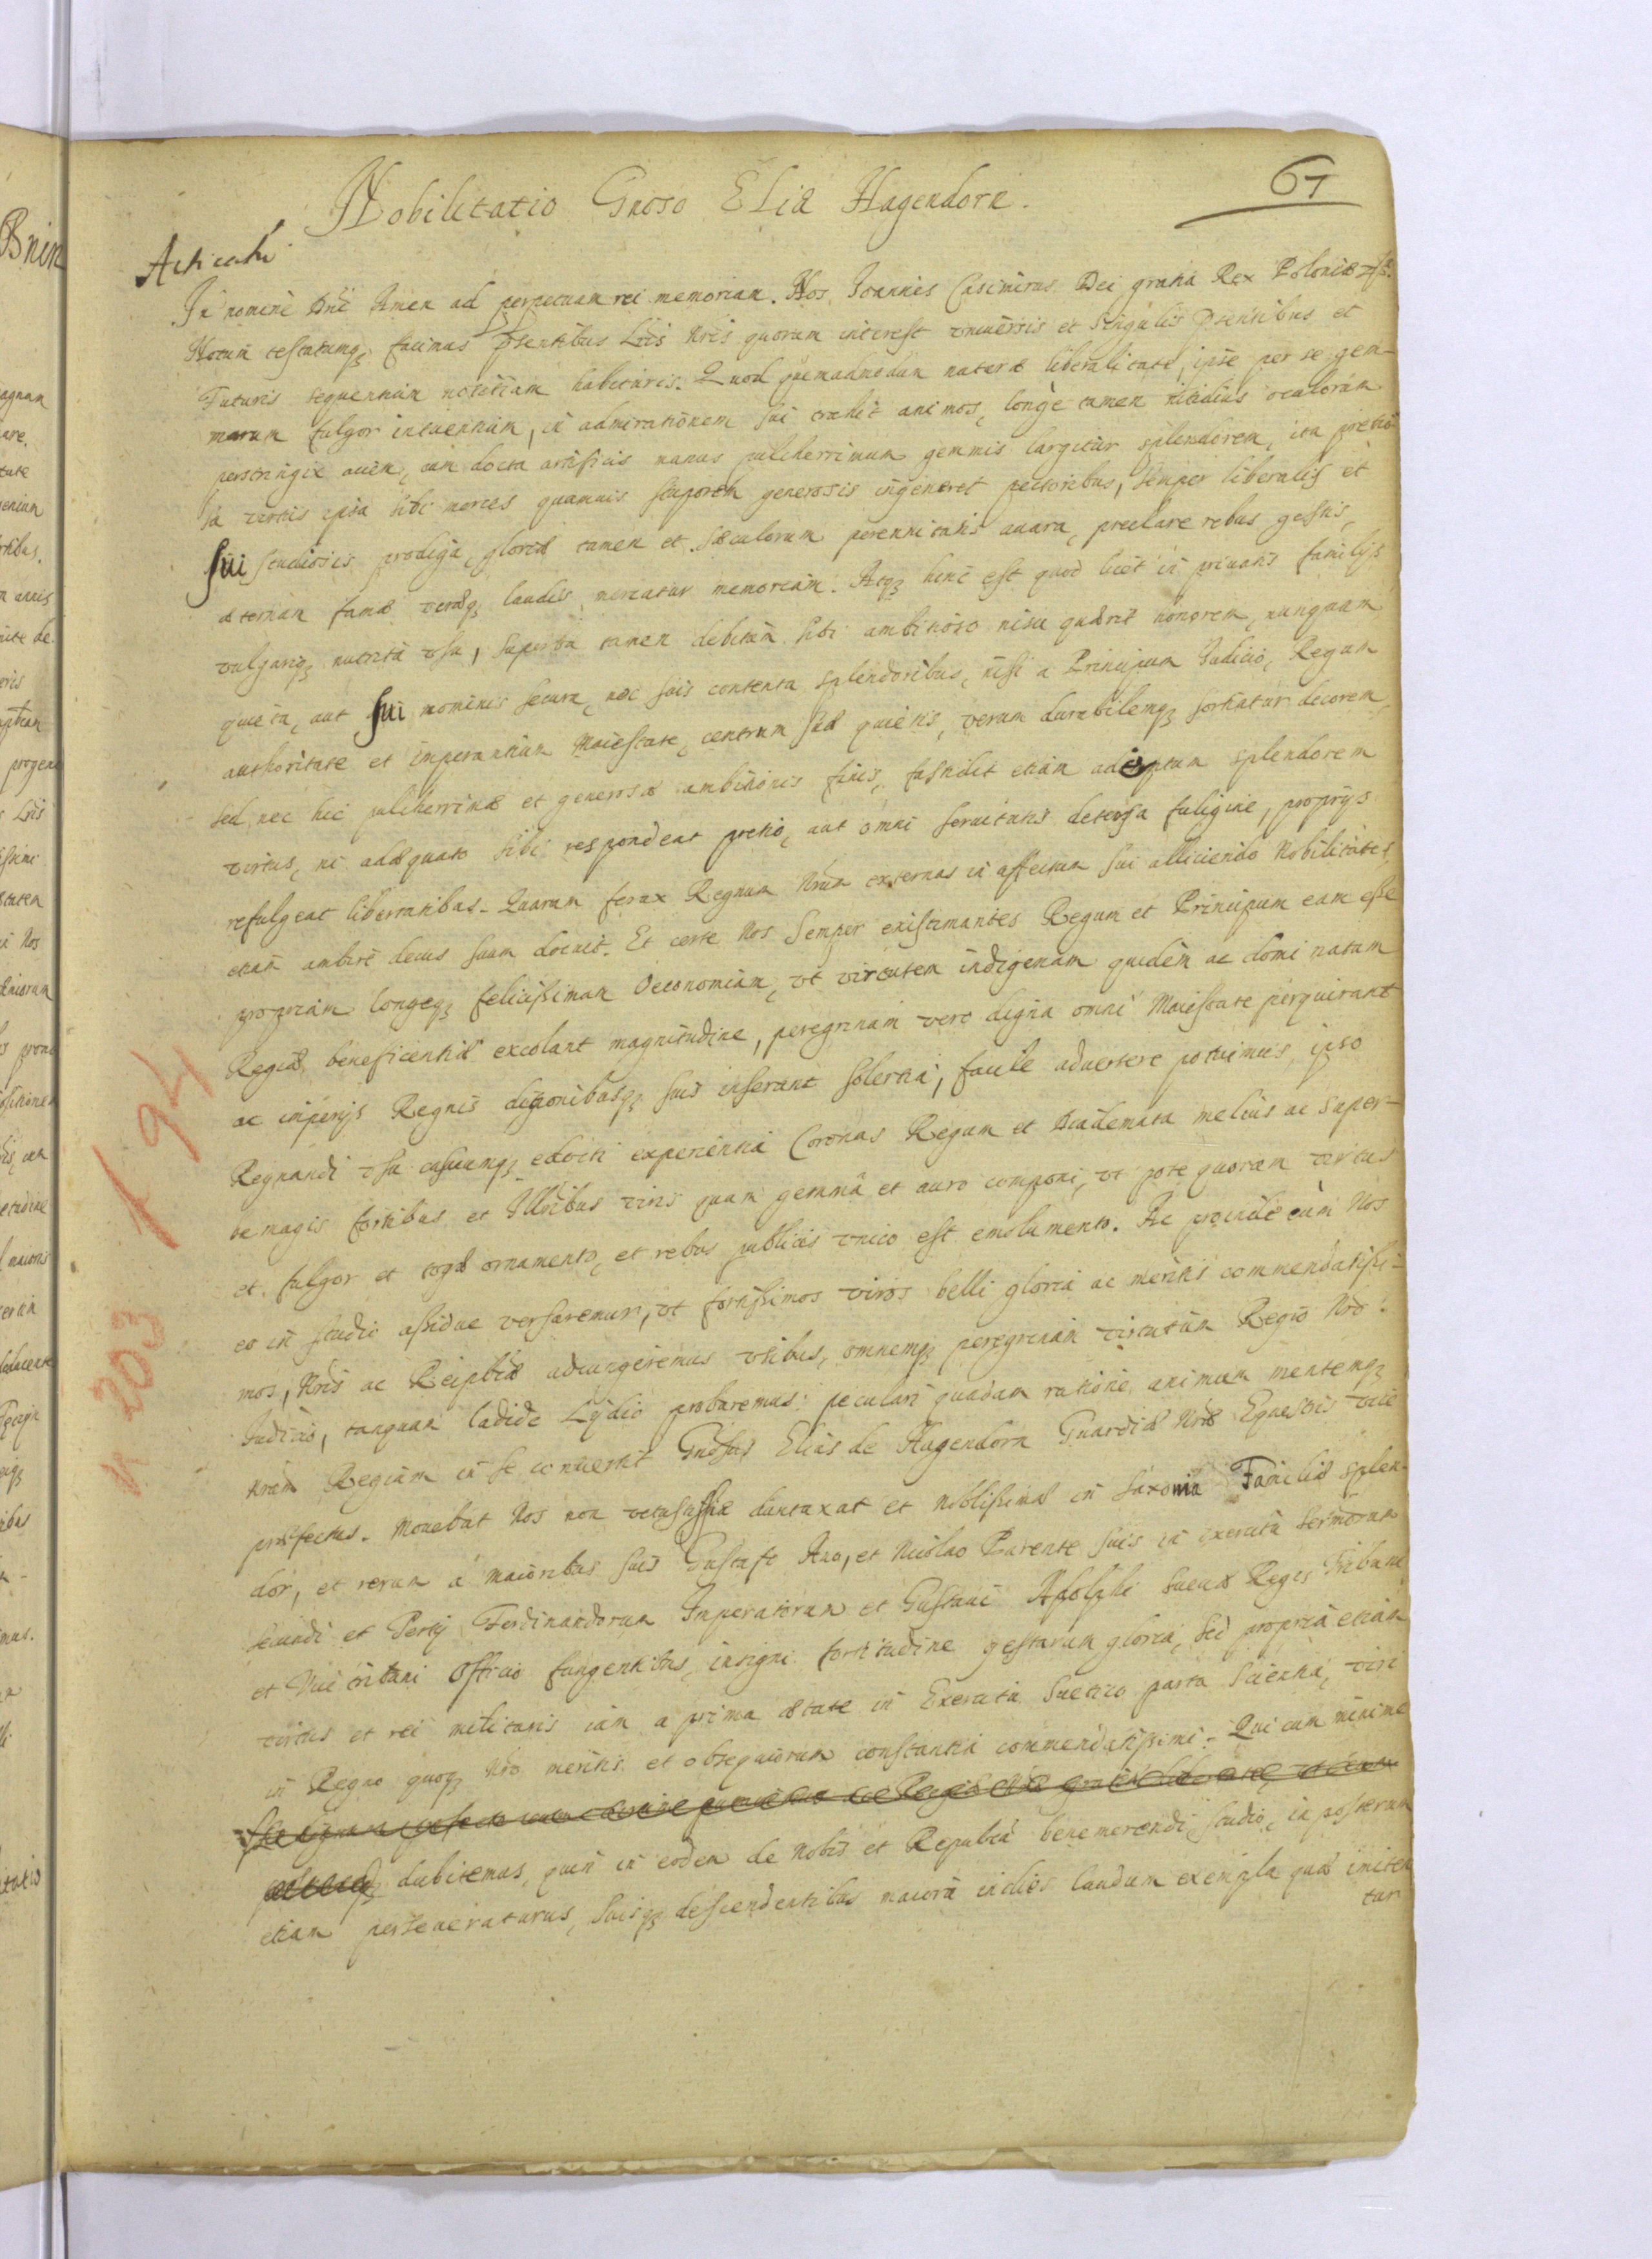 Nobilitatio Gnoso Eliæ Hagendorn.
67
Acticati
In nomine Dni Amen ad perpetuam rei memoriam. Nos Joannes Casimirus Dei gratia Rex Poloniæ
Notum testatumq; facimus pñtibus Lris Nris quorum interest vniuersis et singulis pñtibus et
Futuris sequentium notitiam habituris. Quod quemadmodum naturæ liberalitate, ipse per se gem-
marum fulgor intuentium, in admirationem sui trahit animos, longè tamen nitidius oculorum
perstringit aciem, cum docta artificis manus pulcherrimum gemmis largitur splendorem, ita pretio
sa virtus ipsa sibi merces quamuis stuporem generosis ingeneret pectoribus, semper liberalis et
sui studiosis prodiga, gloriæ tamen et sæculorum perennitatis auara, præclare rebus gestis,
æternam famæ veræq; laudis mercatur memoriam. Atq; hinc est quod licet in priuatis familijs
vulgariq; nutrita vsu, superba tamen debitum sibi ambitioso nisu quærit honorem, nunquam
quieta, aut sui nominis secura, nec suis contenta splendoribus, nisi a Principum Judicio, Regum
authoritate et imperantium Maiestate, centrum suæ quietis, verum durabilemq; sortiatur decorem,
sed nec hic pulcherrimæ et generosæ ambitionis finis, fastidit etiam adeptum splendorem
virtus, ni adæquato sibi respondeat pretio, aut omni seruitutis detersa fuligine, proprijs
refulgeat libertatibus. Quarum ferax Regnum Nrum externas in affectum sui alliciendo Nobilitates,
etiam ambire decus suum docuit. Et certe Nos semper existimantes Regum et Principum eam esse
propriam longeq; felicissimam Oeconomiam, vt virtutem indigenam quidem ac domi natam
Regiæ beneficentiæ excolant magnitudine, peregrinam vero digna omni Maiestate perquirant
ac imperijs Regnis ditionibusq; suis inserant solertia, facile aduertere potuimus, ipso
Regnandi vsu casuumq; edocti experientia Coronas Regum et Diademata melius ac super-
be magis fortibus et Illribus viris quam gemma et auro componi, vt pote quorum virtus
et fulgor et togæ ornamento, et rebus publicis vnico est emolumento. Ac proinde cum Nos
eo in studio assidue versaremur, vt fortissimos viros belli gloria ac meritis commendatissi-
mos, Nris ac Reiplicæ adiungeremus vsibus, omnemq; peregrinam virtutum Regio Nro
Judicio, tanquam lapide Lydio probaremus: peculiari quadam ratione animum mentemq;
Nram Regiam in se conuertit Gnosus Elias de Hagendorn Guardiæ Nræ Equestris vice
præfectus. Mouebat Nos non vetustissimæ duntaxat et Nobilissimæ in Saxonia Familiæ splen-
dor, et rerum a maioribus suis Gustafo Auo, et Nicolao Parente suis in exercitu
secundi et Tertij Ferdinandorum Imperatorum et Gustaui Adolphi Sueciæ Regis Tribuni
et Vice tribuni Officio fungentibus, insigni fortitudine gestarum gloria, sed propria etiam
virtus et rei militaris iam a prima ætate in Exercitu Suetico parta scientia, viri
in Regno quoq; Nro meritis et obsequiorum constantia commendatissimi. Qui cum minime
dubitemus, quin in eodem de Nobis et Republica benemerendi studio, in posterum
etiam perseueraturus, suisq; descendentibus maiora indies laudum exempla quæ imiten
tur
f 94
K 203